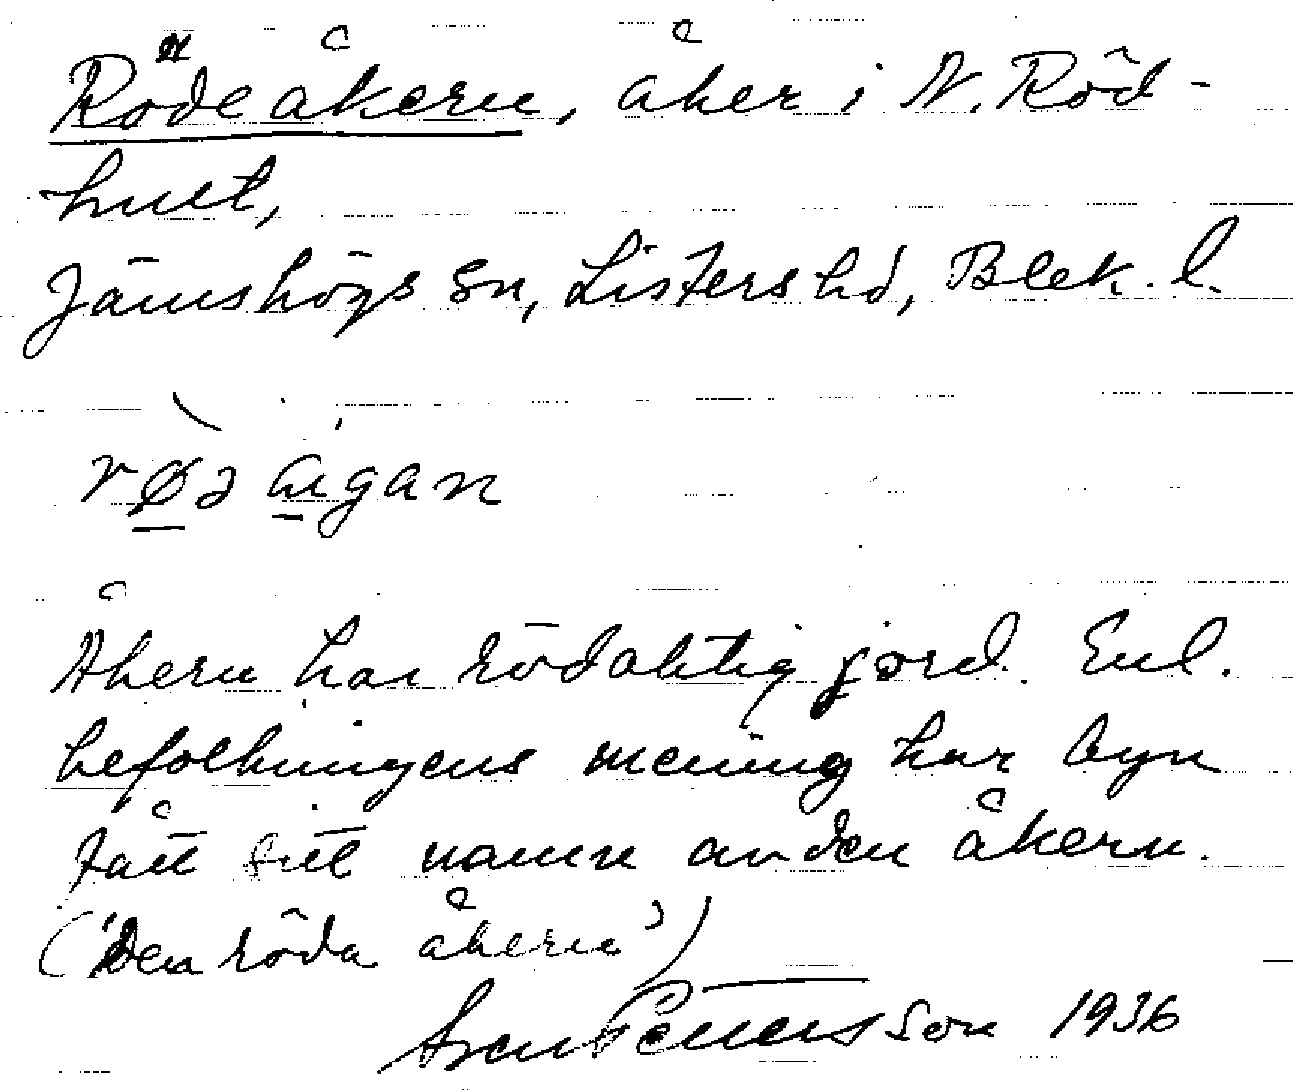 Rödeåkern, åker i N. Röd-
hult,
Jämshögs sn, Listers hd, Blek. l.
røə aigan
Åkern har rödaktig jord. Enl.
befolkningens mening har byn
fått sitt namn av den åkern.
('Den röda åkern')
Sven Pettersson 1936